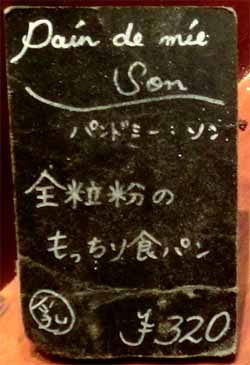 Pain de mie
Son
パンドミー：ソン
全粒粉の
もっちり食パン
¥320